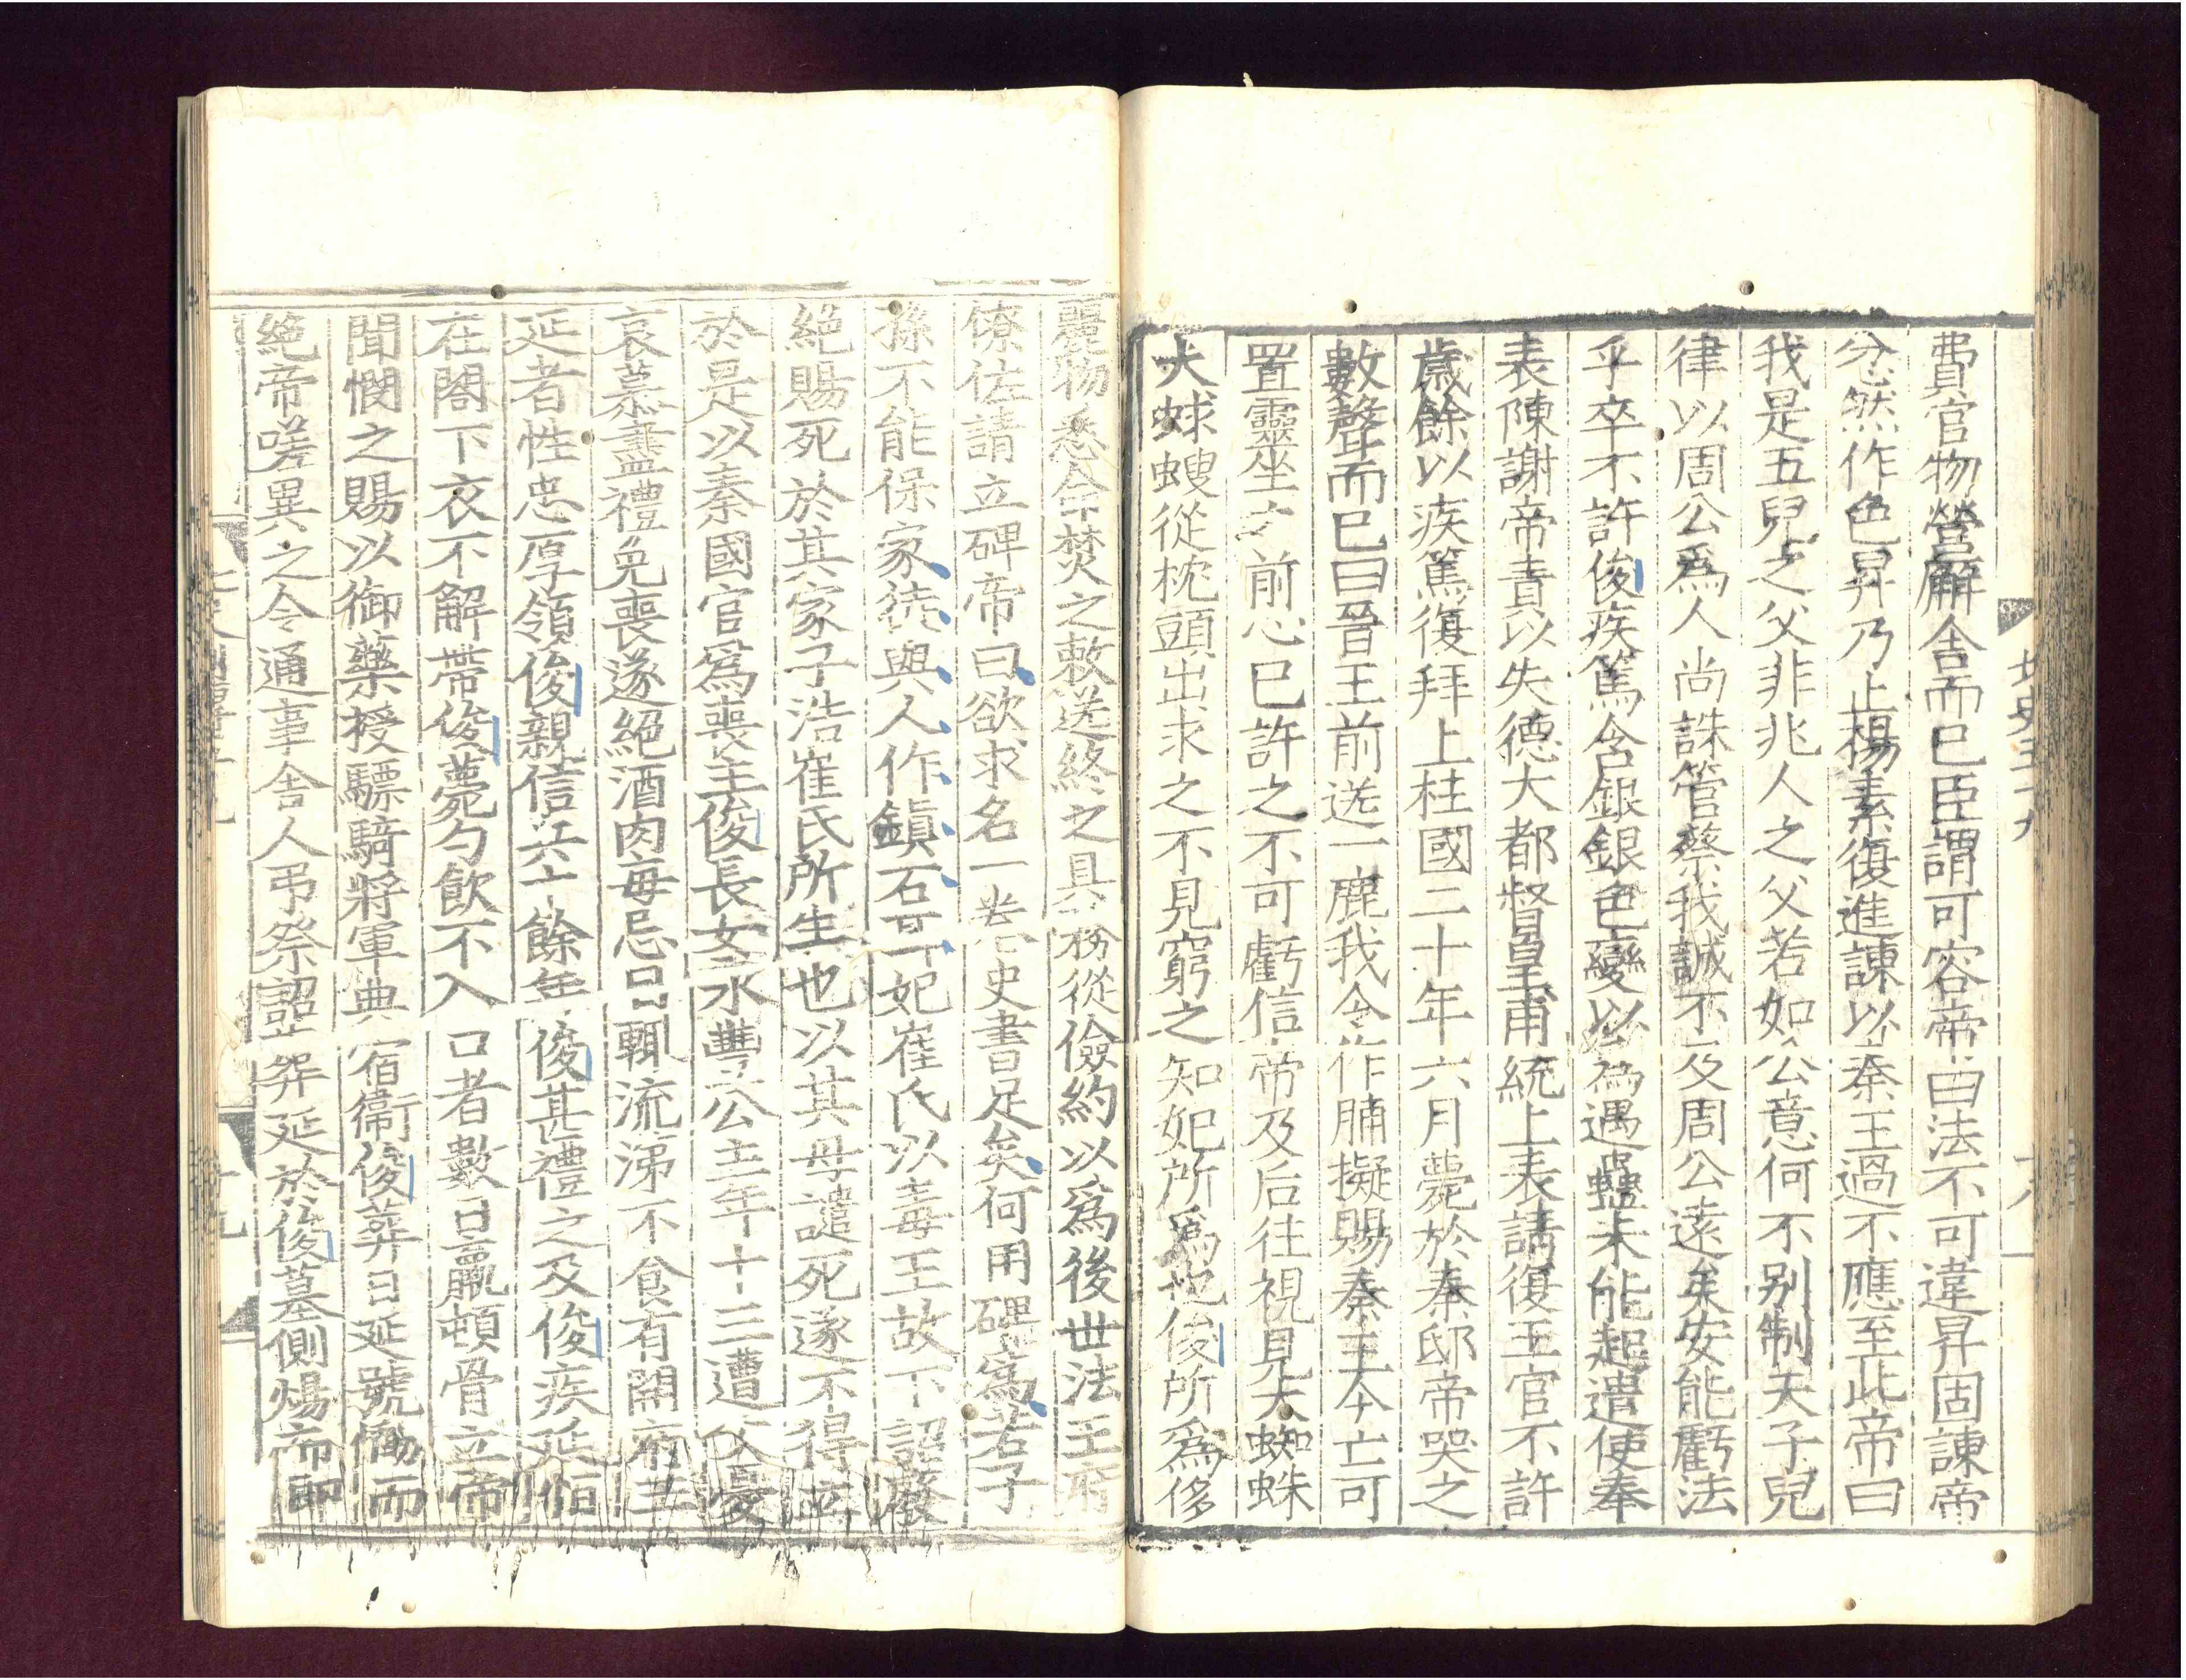 費官物營廨舍而已臣謂可容帝曰法不可違昇固諫帝
忿然作色昇乃止楊素復進諫以秦王過不應至此帝曰
我是五兒之父非兆人之父若如公意何不别制天子兒
律以周公爲人尚誅管蔡我誠不及周公遠矣安能虧法
乎卒不許俊疾篤含銀銀色變以爲遇蠱未能起遣使奉
表陳謝帝責以失德大都督皇甫統上表請復王官不許
歲餘以疾篤復拜上柱國二十年六月薨於秦邸帝哭之
數聲而已曰晉王前送一鹿我令作脯擬賜秦王今亡可
置靈坐之前心已許之不可虧信帝及后往視見大蜘蛛
大蛷螋從枕頭出求之不見窮之知妃所爲也俊所爲侈
麗物悉命焚之敕送終之具務從儉約以爲後世法王府
僚佐請立碑帝曰欲求名一卷史書足矣何用碑爲若子
孫不能保家徒與人作鎮石耳妃崔氏以毒王故下詔廢
絕賜死於其家子浩崔氏所生也以其母譴死遂不得立
於是以秦國官爲喪主俊長女永豐公主年十三遭父憂
哀慕盡禮免喪遂絕酒肉每忌日輒流涕不食有開府王
延者性忠厚領俊親信兵十餘年俊甚禮之及俊疾延恒
在閤下衣不解帶俊薨勺飲不入口者數日羸頓骨立帝
聞憫之賜以御藥授驃騎將軍典宿衞俊葬日延號慟而
絕帝嗟異之令通事舍人弔祭詔葬延於俊墓側煬帝即
北史五十九
十八
十九